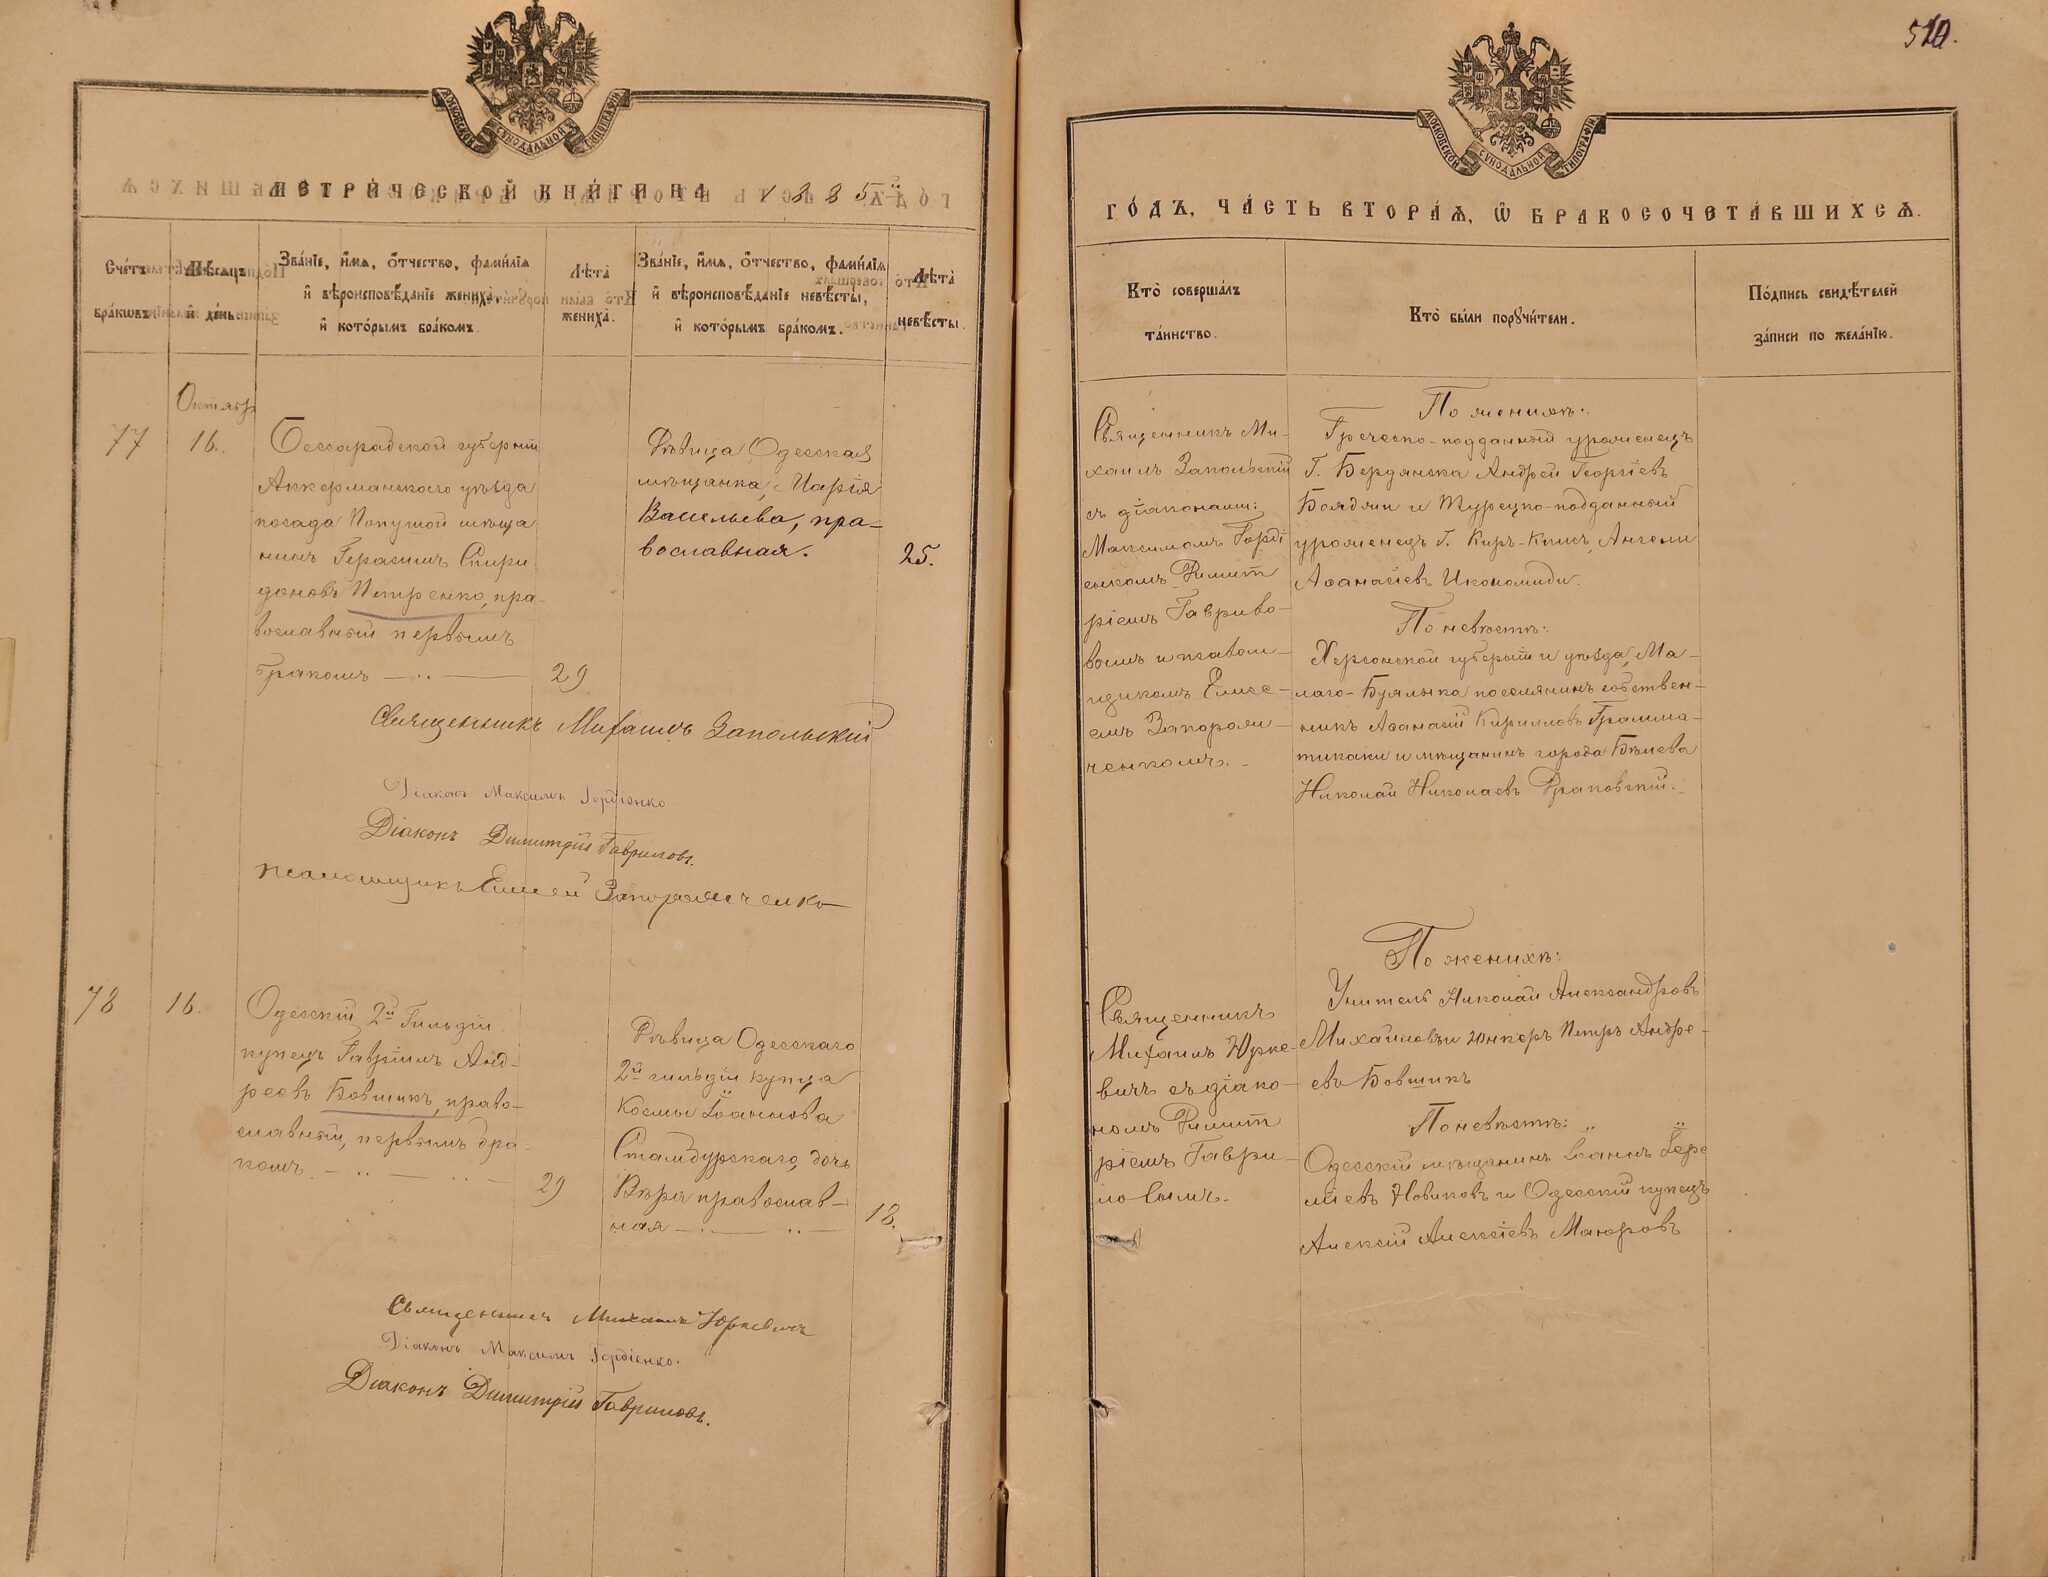 510.
МОСКОВСКОЙ СѴНОДАЛЬНОЙ ТИПОГРАФІИ
МЕТРИЧЕСКОЙ КНИГИ НА 1885й
Счетъ браковъ.
Мѣсяцъ и день.
Званіе, имя, отчество, фамилія
и вѣроисповѣданіе жениха,
и которымъ бракомъ.
Лѣта
жениха.
Званіе, имя, отчество, фамилія
и вѣроисповѣданіе невѣсты,
и которымъ бракомъ.
Лѣта
невѣсты.
Октябр
77
16.
Бессарабской губерніи
Аккерманскаго уѣзда
посада Попушой мѣща
нинъ Герасимъ Спири
доновъ Петренко, пра-
вославный первымъ
бракомъ — .. —
29
Дѣвица Одесская
мѣщанка, Марія
Васильева, пра-
вославная.
25.
Священникъ Михаилъ Запольскій
Діаконъ Максимъ Гордіенко
Діаконъ Димитрій Гавриловъ.
Псаломщикъ Елисей Запорожченко
78
16.
Одесскій 2й Гильдіи
купецъ Гавріилъ Анд-
реевъ Бовшикъ, право-
славный, первымъ бра-
комъ. — .. — .. —
29
Дѣвица Одесскаго
2й гильдіи купца
Космы Іоаннова
Стамбурскаго, дочь
Вѣра православ-
ная — .. — .. —
18.
Священникъ Михаилъ Юркевичъ
Діаконъ Максимъ Гордіенко.
Діаконъ Димитрій Гавриловъ.
МОСКОВСКОЙ СѴНОДАЛЬНОЙ ТИПОГРАФІИ
ГОДЪ, ЧАСТЬ ВТОРАЯ, Ѡ БРАКОСОЧЕТАВШИХСЯ.
Кто совершалъ
таинство.
Кто были поручители.
Подпись свидѣтелей
записи по желанію.
Священникъ Ми-
хаилъ Запольскій
съ діаконами:
Максимомъ Горді
енкомъ, Димит
ріемъ Гаврило-
вымъ и псалом-
щикомъ Елисе-
емъ Запорож-
ченкомъ.
По женихѣ:
Греческо-подданный уроженецъ
Г. Бердянска Андрей Георгіевъ
Бояджи и Турецко-подданный
уроженецъ Г. Киръ-Клисъ, Ангели
Аѳанасіевъ Икономиди.
По невѣстѣ:
Херсонской губерніи и уѣзда, Ма-
лаго-Буялыка поселянинъ собствен-
никъ Аѳанасій Кирилловъ Грамма-
тикаки и мѣщанинъ города Бѣлева
Николай Николаевъ Драковскій.
Священникъ
Михаилъ Юрке-
вичъ съ діако-
номъ Димит
ріемъ Гаври-
ловымъ.
По женихѣ:
Учитель Николай Александровъ
Михайловъ и Юнкеръ Петръ Андре-
евъ Бовшикъ
По невѣстѣ:
Одесскій мѣщанинъ Іоаннъ Іере
міевъ Новиковъ и Одесскій купецъ
Алексій Алексіевъ Маюровъ